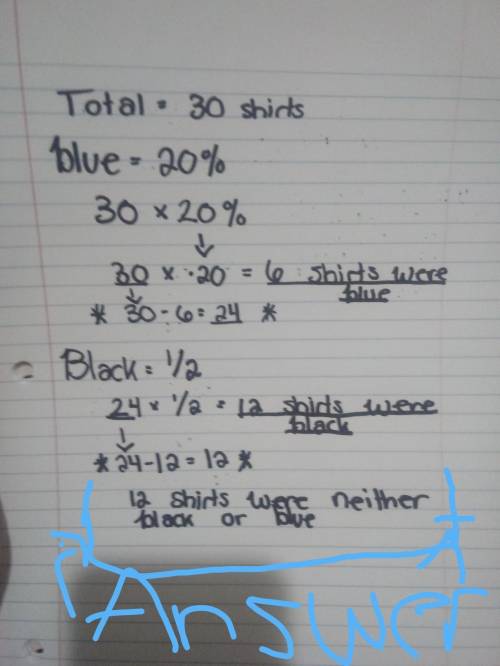 Total = 30 shirts
blue = 20%
30 × 20%
↓
30 × .20 = 6 shirts were
blue
* 30 - 6 = 24 *
Black = 1/2
24 × 1/2 = 12 shirts were
black
* 24 - 12 = 12 *
12 shirts were neither
black or blue
Answer